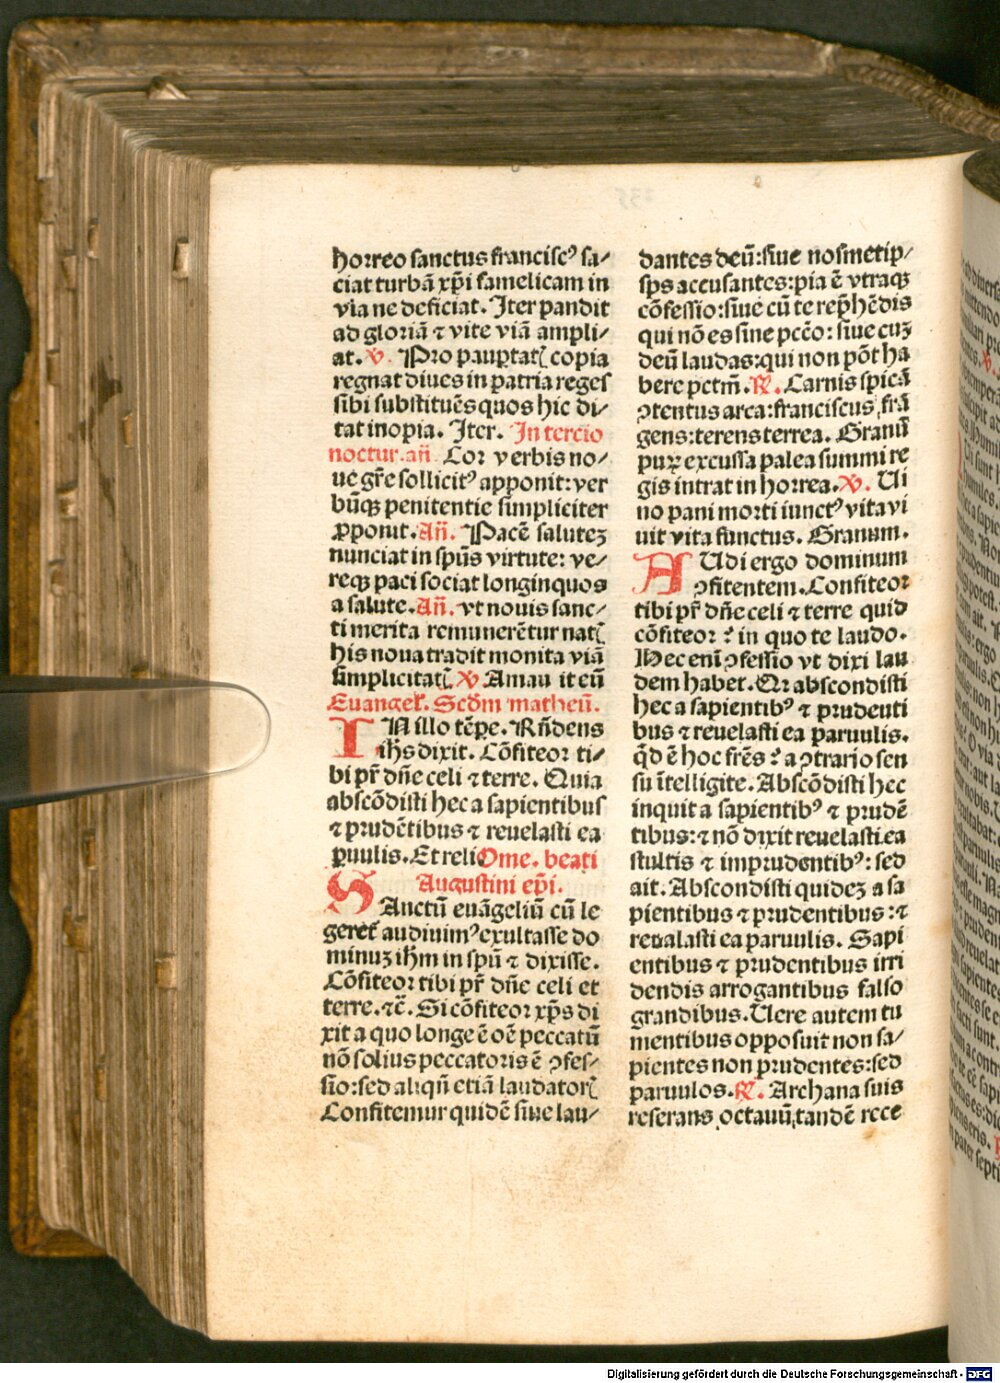 horreo sanctus franciscꝰ sa/
ciat turbã xp̃i famelicam in
via ne deficiat. Iter pandit
ad gloriã ⁊ vite viã ampli/
at. ℣. Pro paup̱tatꝭ copia
regnat diues in patria reges
sibi substituẽs quos hic di/
tat inopia. Iter. In tercio
noctur. añ. Cor verbis no/
ue gr̃e sollicitꝰ apponit: ver
bũqꝫ penitentie simpliciter
ꝓponit. Añ. Pacẽ salutez
nunciat in sp̃us virtute: ve/
reqꝫ paci sociat longinquos
a salute. Añ. vt nouis sanc/
ti merita remunerẽtur natꝭ
his noua tradit monita viã
simplicitatꝭ ℣ Amau it eũ
Euangeł. Scđm matheũ.
IN illo tẽpe. Rñdens
ih̃s dixit. Cõfiteor ti/
bi pr̃ dñe celi ⁊ terre. Quia
abscõdisti hec a sapientibus
⁊ prudẽtibus ⁊ reuelasti ea
ꝑuulis. Et reli Ome. beati
Augustini ep̃i.
SAnctũ euãgeliũ cũ le
geret᷑ audiuimꝰ exultasse do
minuz ih̃m in sp̃u ⁊ dixisse.
Cõfiteor tibi pr̃ dñe celi et
terre. ⁊c̃. Si cõfiteor xp̃s di
xit a quo longe ẽ oẽ peccatũ
nõ solius peccatoris ẽ ꝯfes/
sio: sed aliqñ etiã laudatorꝭ
Confitemur quidẽ siue lau/
dantes deũ: siue nosmetip/
sp̃s accusantes: pia ẽ vtraqꝫ
cõfessio: siue cũ te rep̃hẽdis
qui nõ es sine pctõ: siue cuz
deũ laudas: qui non põt ha
bere pctm̃. ℟. Carnis spicã
ꝯtentus area: franciscus frã
gens: terens terrea. Granũ
puꝝ excussa palea summi re
gis intrat in horrea. ℣. Ui
no pani morti iunctꝰ vita vi
uit vita functus. Granum.
AUdi ergo dominum
ꝯfitentem. Confiteor
tibi pr̃ dñe celi ⁊ terre quid
cõfiteor? in quo te laudo.
Hec eni ꝯfessio vt dixi lau
dem habet. Qr abscondisti
hec a sapientibꝰ ⁊ prudenti
bus ⁊ reuelasti ea paruulis.
qđ ẽ hoc frẽs? a ꝯtrario sen
su ĩtelligite. Abscõdisti hec
inquit a sapientibꝰ ⁊ prudẽ
tibus: ⁊ nõ dixit reuelasti ea
stultis ⁊ imprudentibꝰ: sed
ait. Abscondisti quidez a sa
pientibus ⁊ prudentibus: ⁊
reualasti ea paruulis. Sapi
entibus ⁊ prudentibus irri
dendis arrogantibus falso
grandibus. Uere autem tu
mentibus opposuit non sa/
pientes non prudentes: sed
paruulos. ℟. Archana suis
reserans octauũ, tandẽ rece
Digitalisierung gefördert durch die Deutsche Forschungsgemeinschaft - DFG